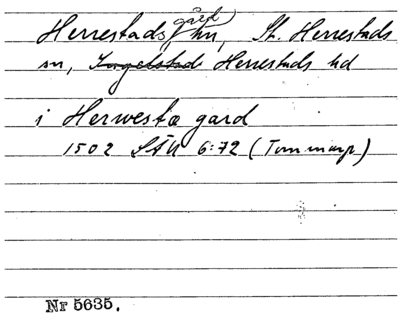 Herrestadsgård hn, St. Herrestads
sn, Ingelstad Herrestads hd
i Herwesta gard
1502 LÄU 6:72 (Tommarp)
Nr 5635.